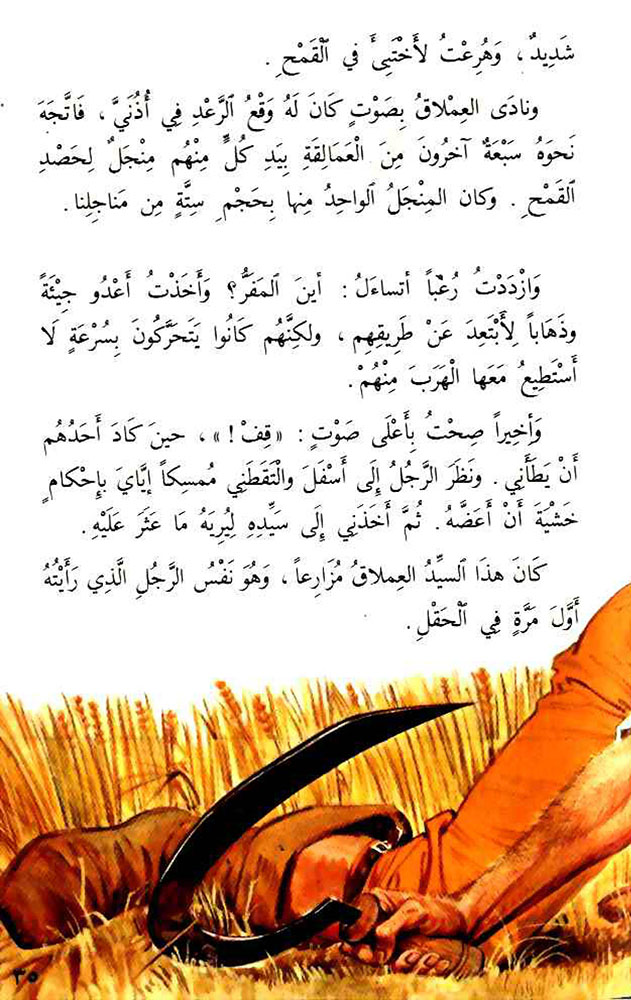 شَدِيدٌ، وَهُرِعْتُ لأَخْتَبِىءَ في ٱلْقَمْحِ.
ونادَى العِمْلاقُ بِصَوْتٍ كَانَ لَهُ وَقْعُ ٱلرَّعْدِ فِي أُذُنَيَّ، فَاتَّجَهَ
نَحوَهُ سَبْعَةٌ آخرُونَ مِنَ ٱلْعَمَالِقَةِ بِيَدِ كُلٍّ مِنْهُم مِنْجَلٌ لِحَصْدِ
ٱلقَمْحِ. وكان المِنْجَلُ ٱلواحِدُ مِنها بِحَجْمِ سِتَّةٍ مِن مَناجِلِنا.
وَازْدَدْتُ رُعْباً أتساءَلُ: أينَ ٱلمَفَرُّ؟ وَأَخَذْتُ أَعْدُو جِيْئَةً
وذَهَاباً لِأَبْتَعِدَ عَنْ طَرِيقِهِم، ولكِنَّهُم كَانُوا يَتَحَرَّكُونَ بِسُرْعَةٍ لَا
أَسْتَطِيعُ مَعَها الْهَرَبَ مِنْهُمْ.
وَأخِيراً صِحْتُ بِأَعْلَى صَوْتٍ: «قِفْ!»، حينَ كَادَ أَحَدُهُم
أَنْ يَطَأَنِي. ونَظَرَ الرَّجُلُ إِلَى أَسْفَلَ والْتَقَطَنِي مُمسِكاً إيَّايَ بِإحْكامٍ
خَشْيَةَ أَنْ أَعَضَّهُ. ثُمَّ أَخَذَنِي إِلَى سَيِّدِهِ لِيُرِيَهُ مَا عَثَرَ عَلَيْهِ.
كَانَ هذَا ٱلسيِّدُ العِملاقُ مُزَارِعاً، وَهُوَ نَفْسُ الرَّجُلِ الَّذِي رَأَيْتُهُ
أَوَّلَ مَرَّةٍ فِي ٱلْحَقْلِ.
٣٥